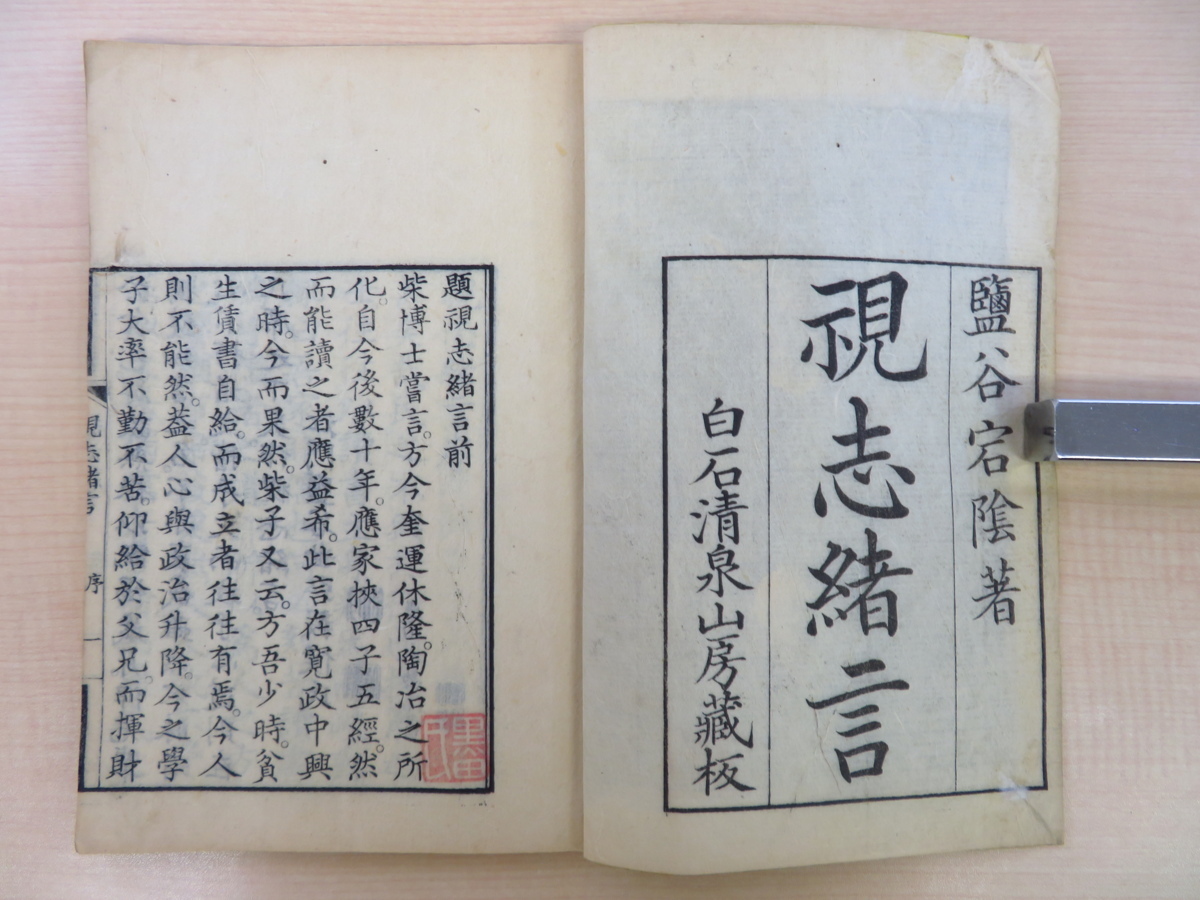 鹽谷宕陰著
視志緒言
白石清泉山房藏板
題視志緒言前
柴博士嘗言。方今奎運休隆。陶冶之所
化。自今後數十年。應家挾四子五經。然
而能讀之者應益希。此言在寛政中興
之時。今而果然。柴子又云。方吾少時。貧
生賃書自給。而成立者往往有焉。今人
則不能然。葢人心與政治升降。今之學
子大率不勤不苦。仰給於父兄。而揮財
視志緒言 序 一